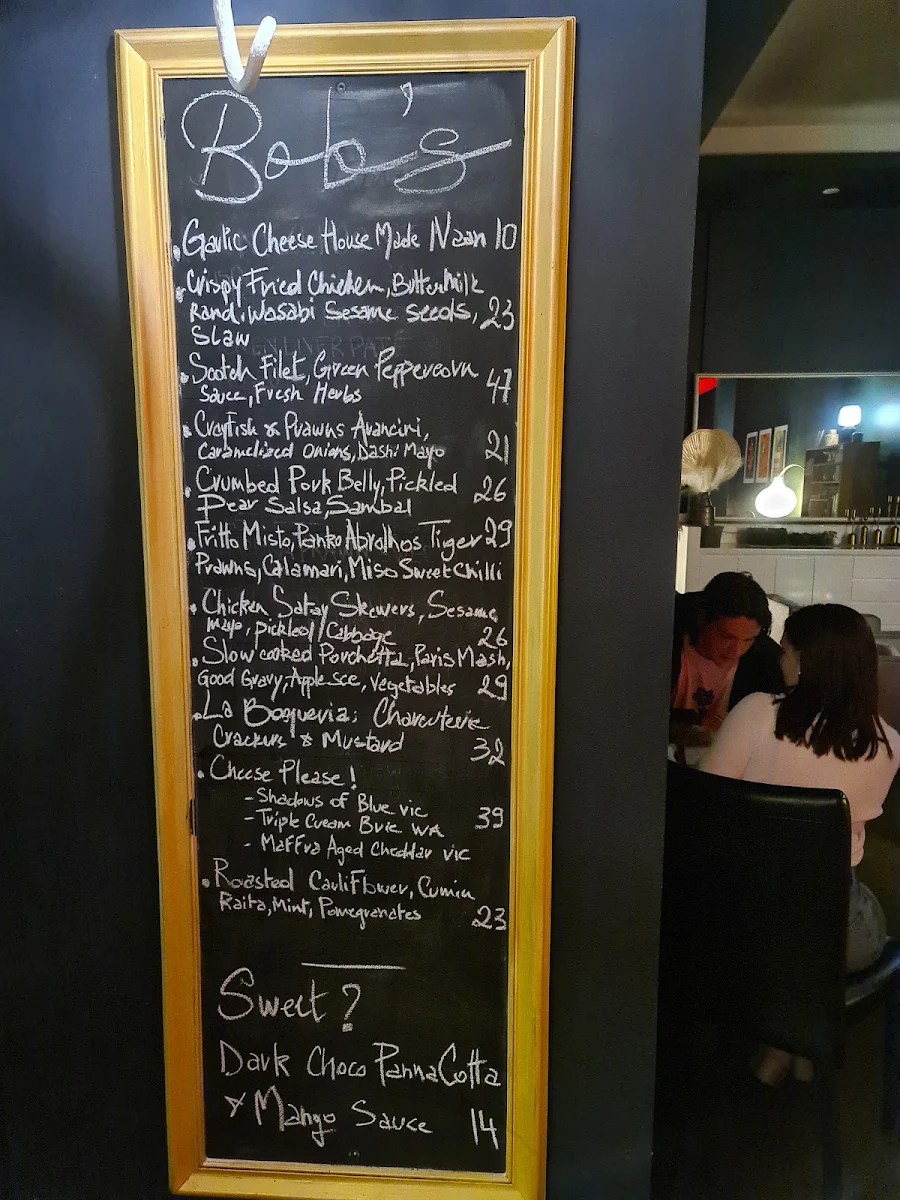 Bob's
• Garlic Cheese House Made Naan 10
• Crispy Fried Chicken, Buttermilk
Rand, Wasabi Sesame seeds, 23
Slaw
• Scotch Filet, Green Peppercorn
Sauce, Fresh Herbs 47
• CrayFish & Prawns Arancini,
Caramelized Onions, Dashi Mayo 21
• Crumbed Pork Belly, Pickled
Pear Salsa, Sambal 26
• Fritto Misto, Panko Abrolhos Tiger 29
Prawns, Calamari, Miso Sweet Chilli
• Chicken Satay Skewers, Sesame
Mayo, pickled/Cabbage 26
• Slow cooked Porchetta, Paris Mash,
Good Gravy, Apple sce, Vegetables 29
• La Boqueria; Charcuterie
Crackers & Mustard 32
• Cheese Please!
- Shadows of Blue vic
- Triple Cream Brie WA 39
- Maffra Aged Cheddar vic
• Roasted CauliFlower, Cumin
Raita, Mint, Pomegranates 23
Sweet?
Dark Choco PannaCotta
& Mango Sauce 14